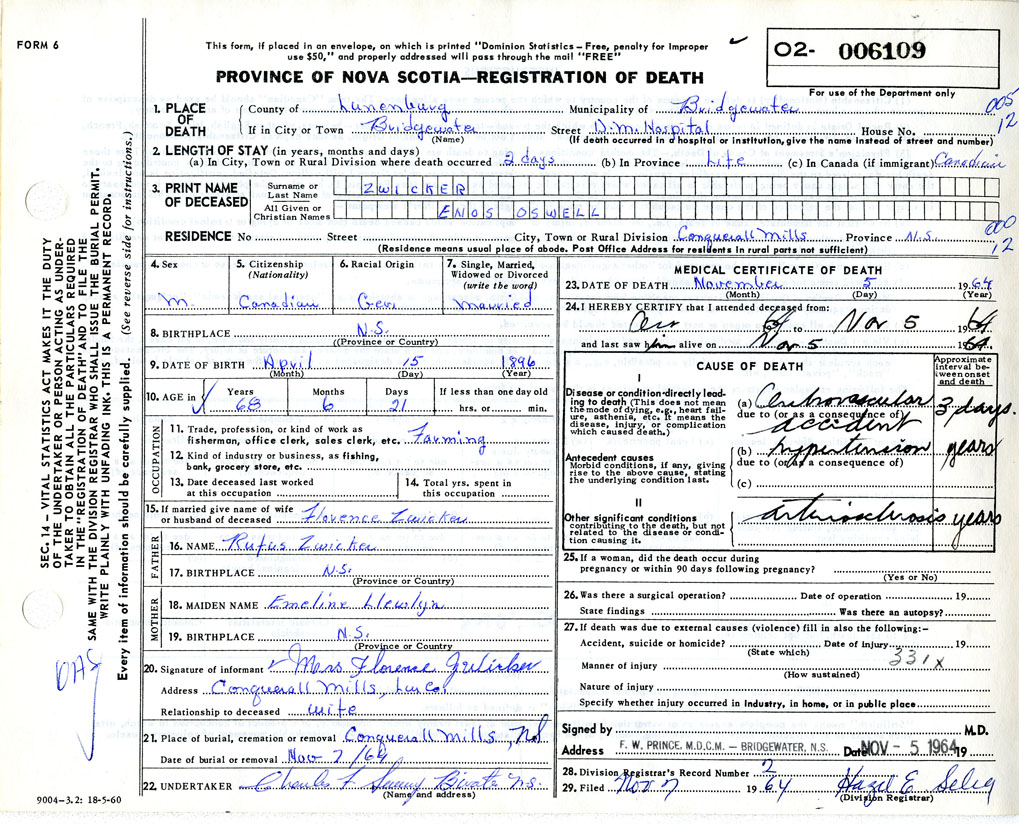 FORM 6
This form, if placed in an envelope, on which is printed "Dominion Statistics – Free, penalty for improper
use $50," and properly addressed will pass through the mail "FREE"
PROVINCE OF NOVA SCOTIA—REGISTRATION OF DEATH
02- 006109
For use of the Department only
005
12
1. PLACE OF DEATH
County of Lunenburg Municipality of Bridgewater
If in City or Town Bridgewater Street D.M. Hospital House No.
(Name) (If death occurred in a hospital or institution, give the name instead of street and number)
2. LENGTH OF STAY (in years, months and days)
(a) In City, Town or Rural Division where death occurred 2 days (b) In Province Life (c) In Canada (if immigrant) Canadian
3. PRINT NAME OF DECEASED
Surname or Last Name ZWICKER
All Given or Christian Names ENOS OSWELL
000
12
RESIDENCE No Street City, Town or Rural Division Conquerall Mills Province N.S.
(Residence means usual place of abode. Post Office Address for residents in rural parts not sufficient)
4. Sex M.
5. Citizenship (Nationality) Canadian
6. Racial Origin Ger.
7. Single, Married, Widowed or Divorced (write the word) Married
8. BIRTHPLACE N.S.
(Province or Country)
9. DATE OF BIRTH April 15 1896
(Month) (Day) (Year)
10. AGE in Years Months Days If less than one day old
✓ 68 6 21 hrs. or min.
OCCUPATION
11. Trade, profession, or kind of work as
fisherman, office clerk, sales clerk, etc. Farming
12. Kind of industry or business, as fishing,
bank, grocery store, etc.
13. Date deceased last worked
at this occupation
14. Total yrs. spent in
this occupation
15. If married give name of wife
or husband of deceased Florence Zwicker
FATHER
16. NAME Rufus Zwicker
17. BIRTHPLACE N.S.
(Province or Country)
MOTHER
18. MAIDEN NAME Emeline Llewlyn
19. BIRTHPLACE N.S.
(Province or Country)
20. Signature of informant Mrs Florence Zwicker
Address Conquerall Mills, Lun Co.
Relationship to deceased wife
21. Place of burial, cremation or removal Conquerall Mills, NS
Date of burial or removal Nov 7/64
22. UNDERTAKER Charles
(Name and address)
9004–3.2: 18-5-60
MEDICAL CERTIFICATE OF DEATH
23. DATE OF DEATH November 5 1964
(Month) (Day) (Year)
24. I HEREBY CERTIFY that I attended deceased from:
64 to Nov 5 1964
and last saw him alive on Nov 5 1964
CAUSE OF DEATH
Approximate interval between onset and death
I
Disease or condition directly leading to death (This does not mean the mode of dying, e.g., heart failure, asthenia, etc. It means the disease, injury, or complication which caused death.)
(a) Cerebrovascular 3 days.
due to (or as a consequence of)
accident
Antecedent causes
Morbid conditions, if any, giving rise to the above cause, stating the underlying condition last.
(b) hypertension years
due to (or as a consequence of)
(c)
II
Other significant conditions contributing to the death, but not related to the disease or condition causing it.
arteriosclerosis years
25. If a woman, did the death occur during
pregnancy or within 90 days following pregnancy?
(Yes or No)
26. Was there a surgical operation? Date of operation 19
State findings Was there an autopsy?
27. If death was due to external causes (violence) fill in also the following:–
Accident, suicide or homicide? Date of injury 19
(State which)
331x
Manner of injury
(How sustained)
Nature of injury
Specify whether injury occurred in industry, in home, or in public place
Signed by M.D.
Address F. W. PRINCE. M.D.C.M. – BRIDGEWATER, N.S. Date NOV - 5 1964 19
28. Division Registrar's Record Number 2
29. Filed Nov 7 1964 Hazel E. Selig
(Division Registrar)
SEC. 14 – VITAL STATISTICS ACT MAKES IT THE DUTY
OF THE UNDERTAKER OR PERSON ACTING AS UNDER-
TAKER TO OBTAIN ALL THE PARTICULARS REQUIRED
IN THE "REGISTRATION OF DEATH" AND TO FILE THE
SAME WITH THE DIVISION REGISTRAR WHO SHALL ISSUE THE BURIAL PERMIT.
WRITE PLAINLY WITH UNFADING INK. THIS IS A PERMANENT RECORD.
Every item of information should be carefully supplied. (See reverse side for instructions.)